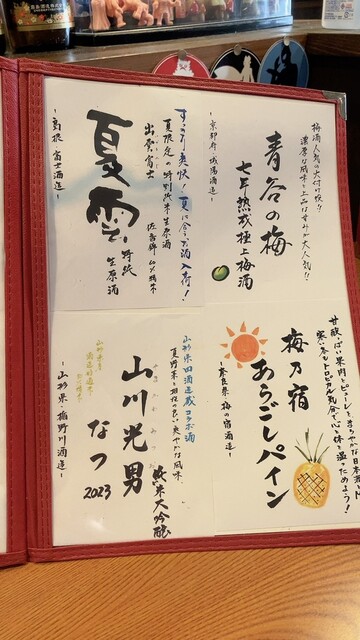 梅酒人気の火付け役!!
濃厚な風味と上品な甘みが大人気!!
青谷の梅
七年熟成極上梅酒
-京都府 城陽酒造-
すっきり爽快!夏に合うお酒入荷!
夏限定の特別純米生原酒
出雲富士
佐香錦 60%精米
夏雲
特純
生原酒
-島根 富士酒造-
甘酸っぱい果肉とピューレとまろやかな日本酒と
寒い冬もトロピカル気分で心も体も温ったまろう!
梅乃宿
あらごしパイン
-奈良県 梅の宿酒造-
山形県四酒造蔵コラボ酒
夏野菜と相性の良い爽やかな風味
山川光男
なつ
2023
純米大吟醸
-山形県 楯野川酒造-